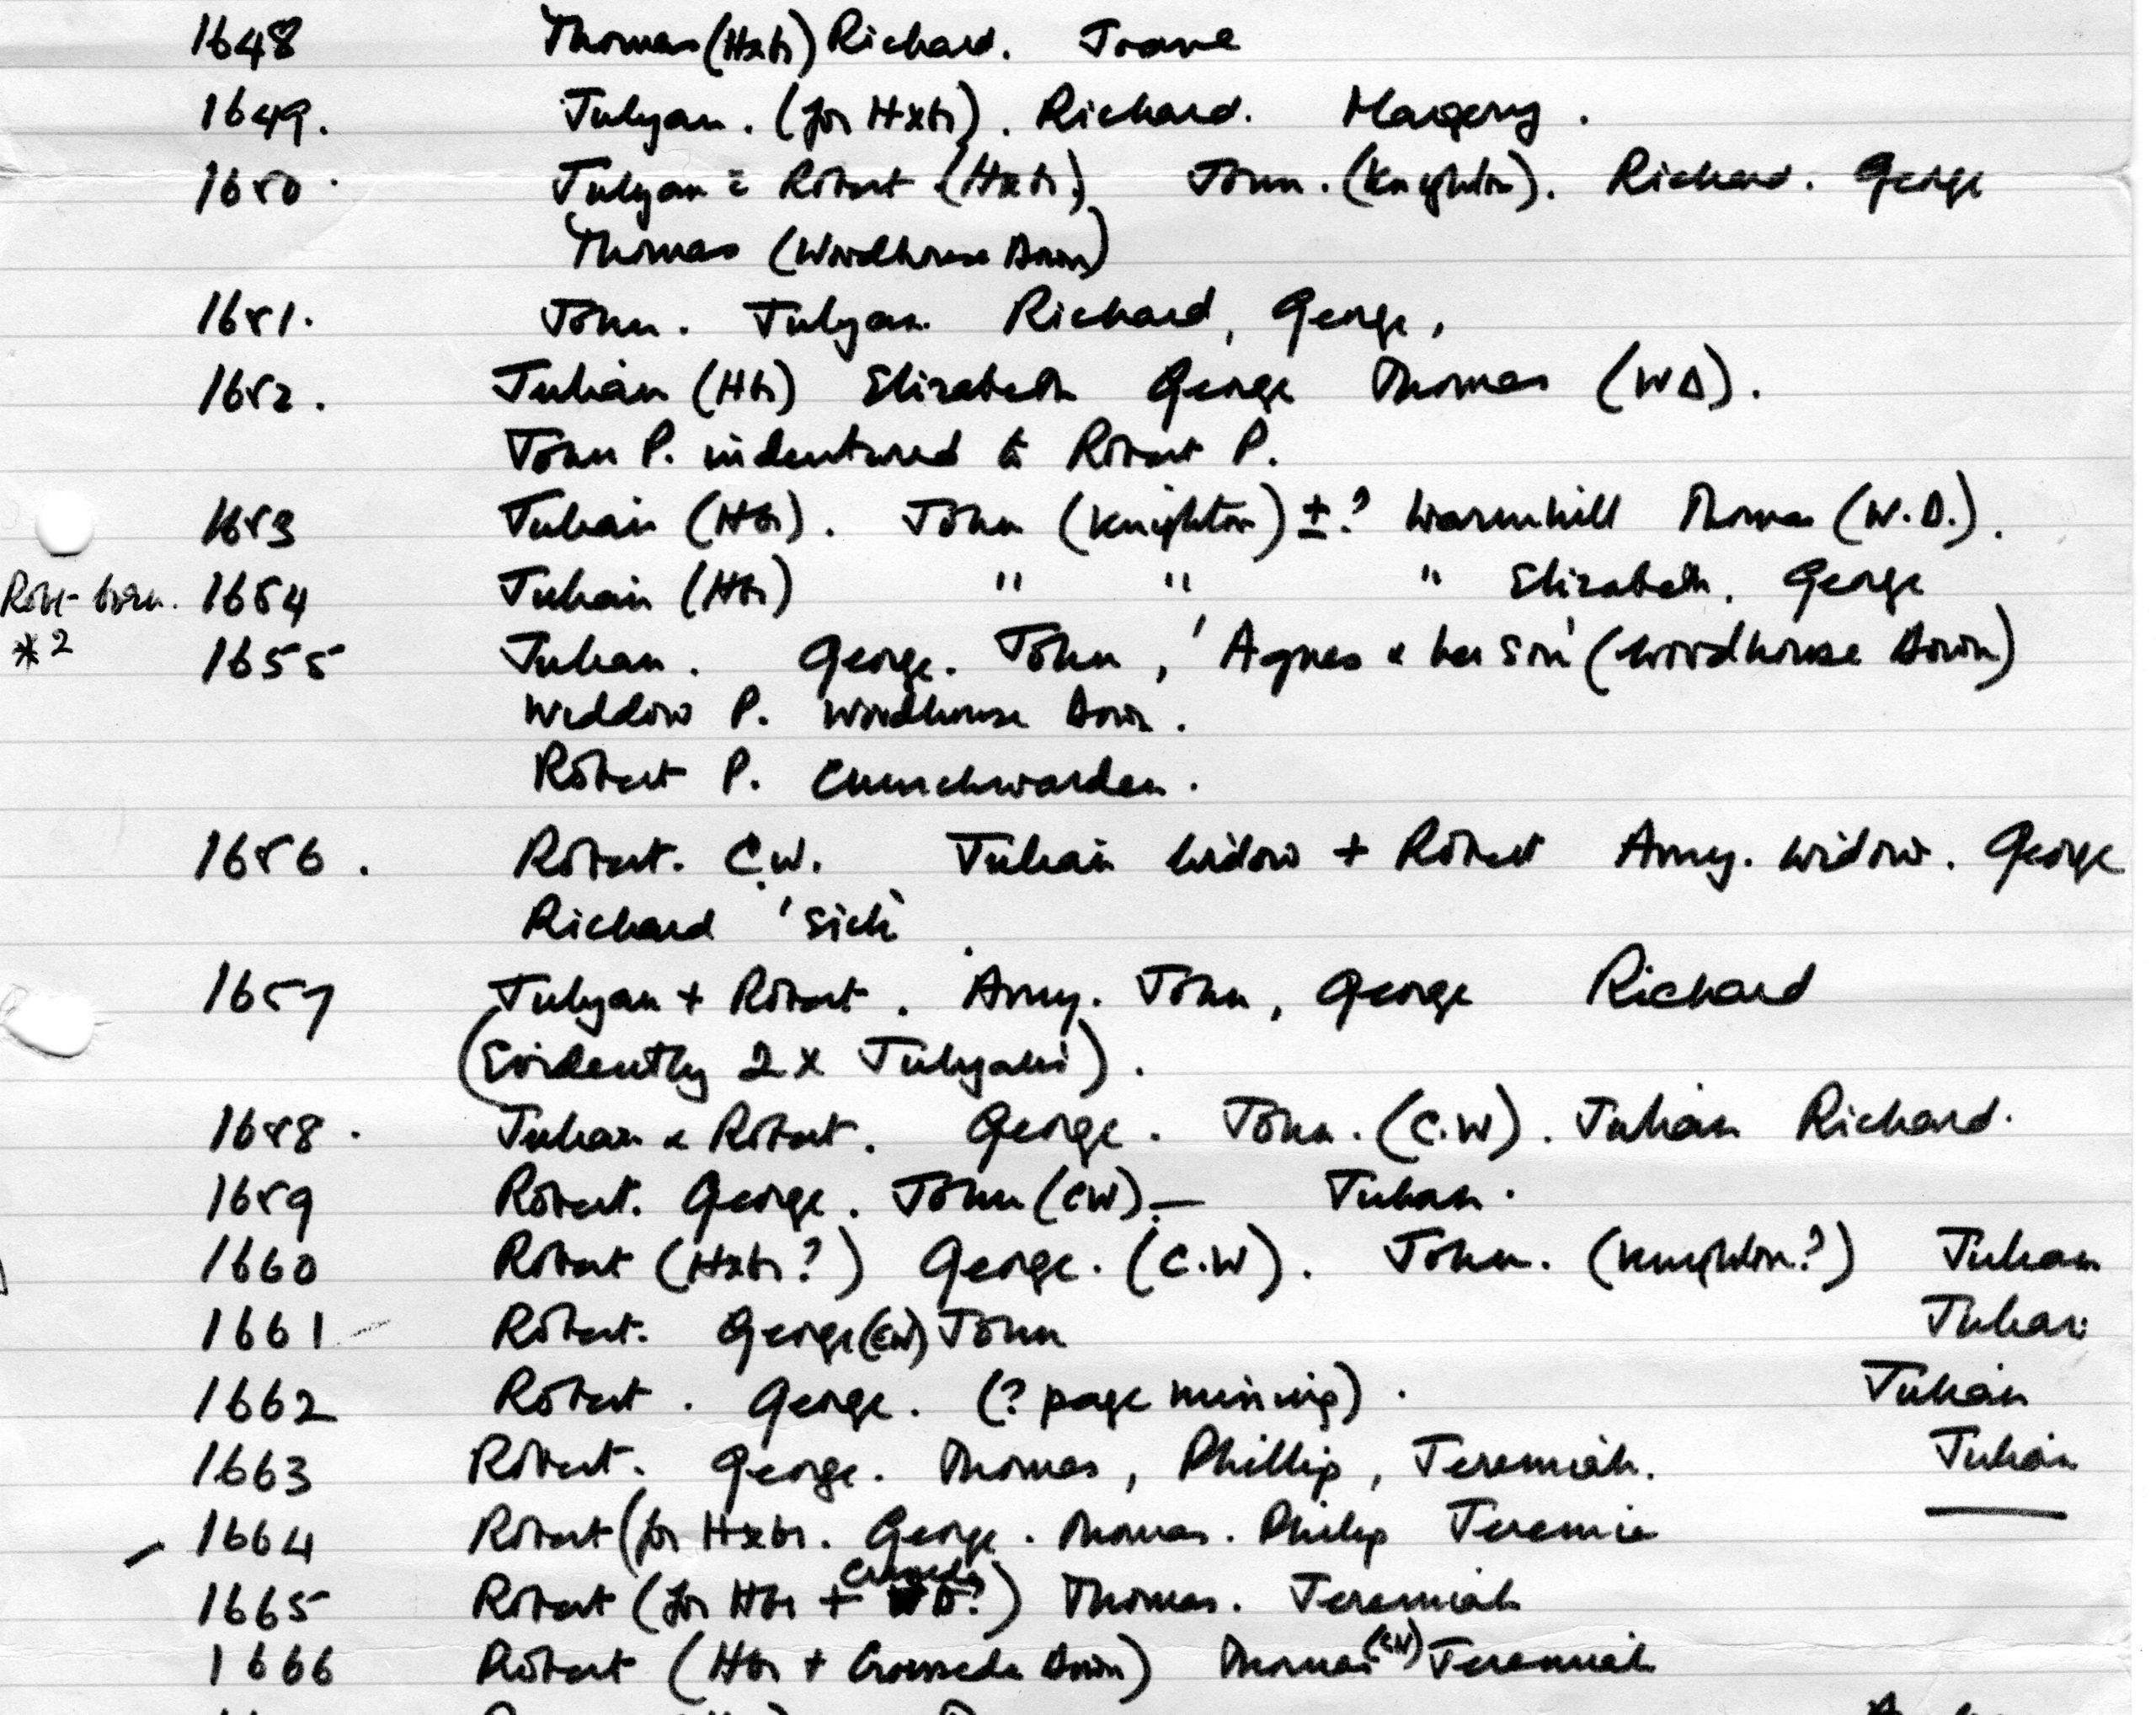 1648 Thomas (Hxbr) Richard. Joane
1649. Julyan. (for Hxbr). Richard. Margery.
1650. Julyan = Robert (Hxbr) John. (Knighton). Richard. George
Thomas (Woodhouse Down)
1651. John. Julyan. Richard, George,
1652. Julian (Hbr) Elizabeth George Thomas (WD).
John P. indentured to Robert P.
1653 Julian (Hbr). John (Knighton) ±? Warmhill Thomas (W.D.).
born. 1654 Julian (Hbr) " " " Elizabeth. George
*2 1655 Julian. George. John, 'Agnes & her son' (Woodhouse Down)
Widdow P. Woodhouse Down.
Robert P. Churchwarden.
1656. Robert. C.W. Julian Widow + Robert Amy. Widow. George
Richard 'sick'
1657 Julyan + Robert. Amy. John, George Richard
(Evidently 2 x Julyans).
1658. Julian & Robert. George. John. (C.W). Julian Richard.
1659 Robert. George. John (CW). — Julian.
1660 Robert (Hxbr?) George. (C.W). John. (Knighton?) Julian
1661 Robert. George (CW) John Julian
1662 Robert. George. (? page missing). Julian
1663 Robert. George. Thomas, Phillip, Jeremiah. Julian
1664 Robert (for Hxbr. George. Thomas. Philip Jeremie
1665 Robert (for Hbr + ?) Thomas. Jeremiah
1666 Robert (Hbr + Down) Thomas (CW) Jeremiah